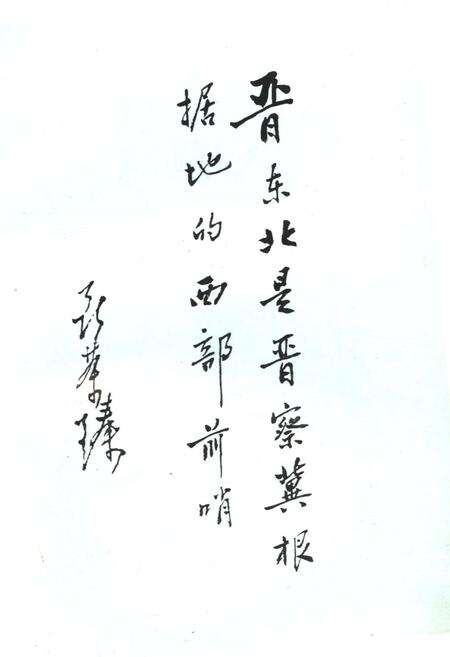 晋东北是晋察冀根
据地的西部前哨
聂荣臻